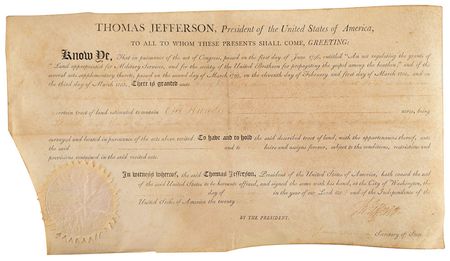 THOMAS JEFFERSON, President of the United States of America,
TO ALL TO WHOM THESE PRESENTS SHALL COME, GREETING:
Know Ye, That in pursuance of the act of Congress, passed on the first day of June 1796, entitled "An act regulating the grants of
"Land appropriated for Military Services, and for the society of the United Brethren for propagating the gospel among the heathen," and of the
several acts supplementary thereto, passed on the second day of March 1799, on the eleventh day of February and first day of March 1800, and on
the third day of March 1803, There is granted unto
certain tract of land estimated to contain acres, being
surveyed and located in pursuance of the acts above recited: To have and to hold the said described tract of land, with the appurtenances thereof, unto
the said and to heirs and assigns forever, subject to the conditions, restrictions and
provisions contained in the said recited acts.
In witness whereof, the said Thomas Jefferson, President of the United States of America, hath caused the seal
of the said United States to be hereunto affixed, and signed the same with his hand, at the City of Washington, the
in the year of our Lord and of the Independence of the
United States of America the twenty
BY THE PRESIDENT.
Secretary of State